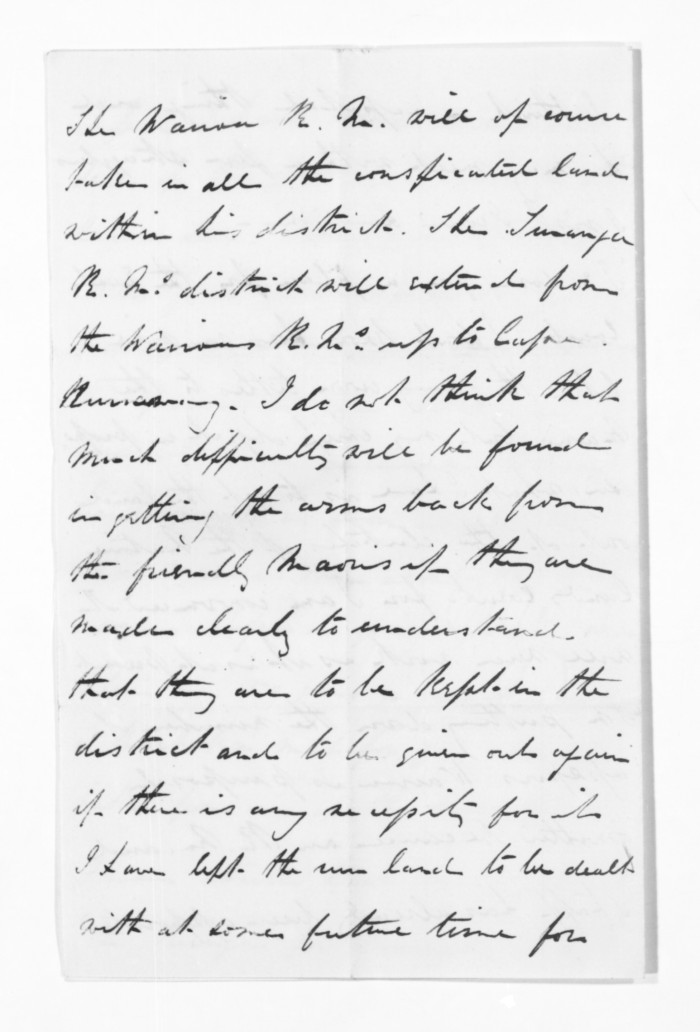 The Wairoa R. M. will of course
take in all the confiscated land
within his district. The Turanga
R. M.s district will extend from
the Wairoas R. M.s up to Cape
Runaway. I do not think that
much difficulty will be found
in getting the arms back from
the friendly Maoris if they are
made clearly to understand
that they are to be kept in the
district and to be given out again
if there is any necessity for it
I have left the land to be dealt
with at some future time for